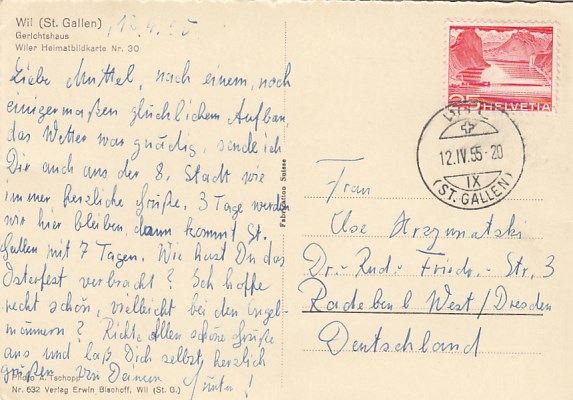 Wil (St. Gallen)
Gerichtshaus
Wiler Heimatbildkarte Nr. 30
12.4.55
Liebe Muttel, nach einem, noch
einigermaßen glücklichem Aufbau,
das Wetter war gnädig, sende ich
Dir auch aus der 8. Stadt wie
immer herzliche Grüße. 3 Tage werden
wir hier bleiben, dann kommt St.
Gallen mit 7 Tagen. Wie hast Du das
Osterfest verbracht? Ich hoffe
recht schön, vielleicht bei den Engel-
männern? Richte Allen schöne Grüße
aus und laß Dich selbst herzlich
grüßen von Deinem
Photo A. Tschopp
Nr. 632 Verlag Erwin Bischoff, Wil (St. G.)
Fabrication Suisse
HELVETIA
12.IV.55-20
IX
(ST. GALLEN)
Frau
Ilse
Dr.-Rud.-Friedr.-Str. 3
Radebeul West/Dresden
Deutschland